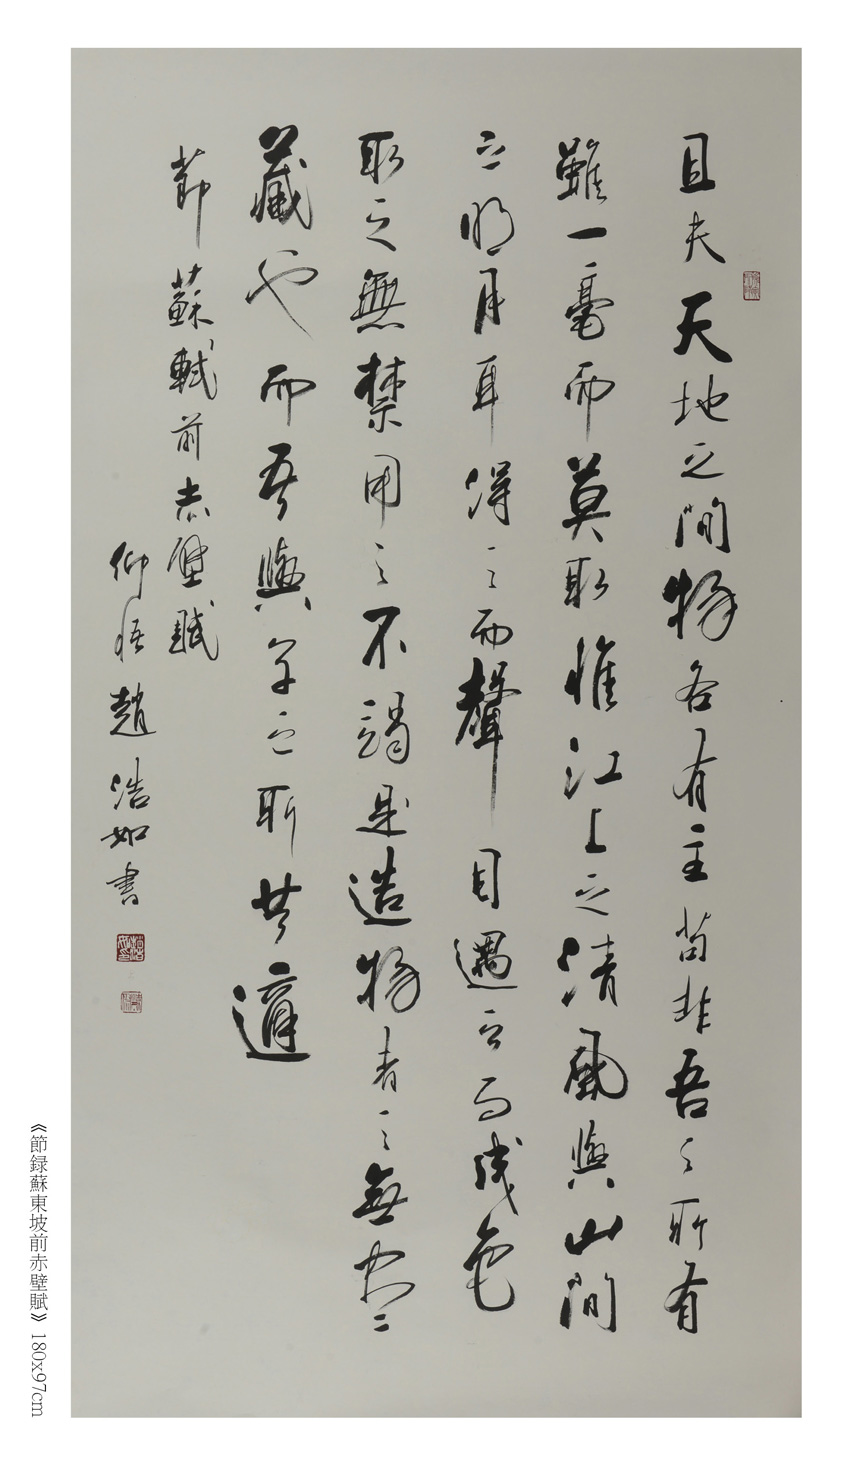 且夫天地之間物各有主苟非吾之所有
雖一毫而莫取惟江上之清風與山間
之明月耳得之而聲目遇之而成色
取之無禁用之不竭是造物者之無盡
藏也而吾與子之所共適
節蘇軾前赤壁賦
仰 趙浩如書
《節録蘇東坡前赤壁賦》180x97cm